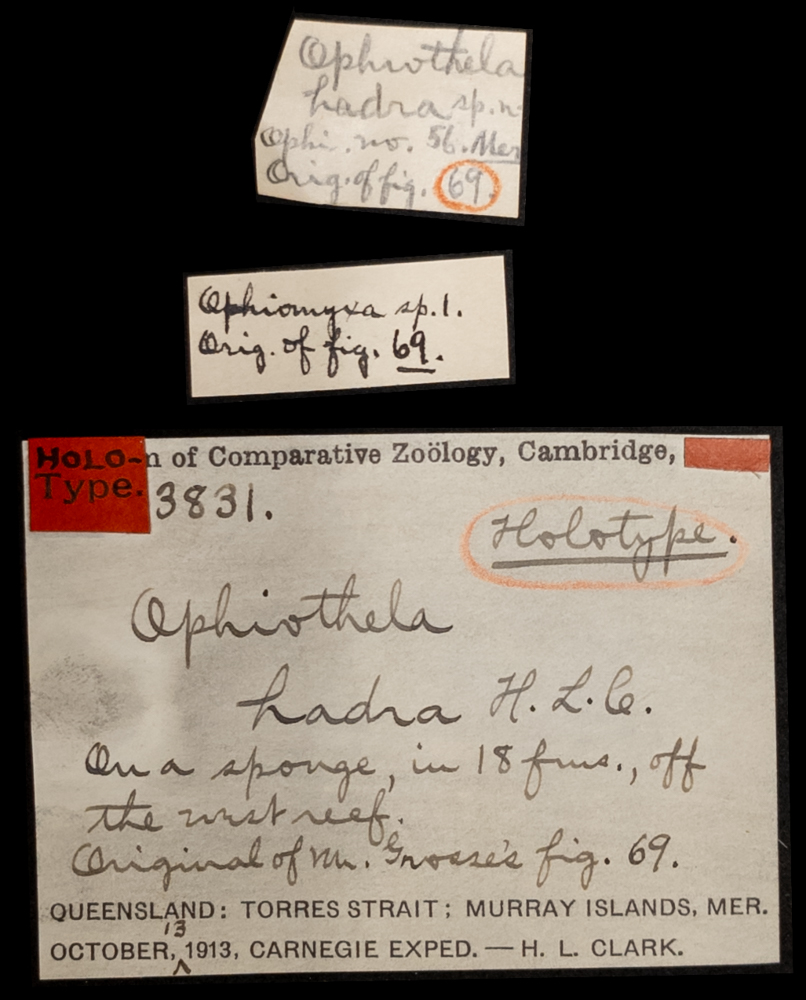 Ophiothela
hadra sp. n.
Ophi. no. 56. Mer
Orig. of fig. 69.
Ophiomyxa sp. 1.
Orig. of fig. 69.
HOLO- n of Comparative Zoölogy, Cambridge,
Type. 3831.
Holotype.
Ophiothela
hadra H. L. C.
On a sponge, in 18 fms., off
the west reef.
Original of Mr. Grosse's fig. 69.
QUEENSLAND: TORRES STRAIT; MURRAY ISLANDS, MER.
13
OCTOBER, ^ 1913, CARNEGIE EXPED. — H. L. CLARK.